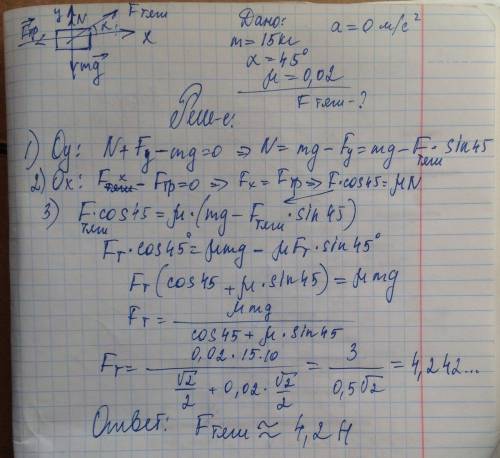 y N Fтяги
Fтр α x
mg
Дано:
m = 15кг
α = 45°
μ = 0,02
Fтяги - ?
a = 0 м/с²
Реш-е:
1) Oy: N + Fy - mg = 0 ⇒ N = mg - Fy = mg - Fтяги · sin45
2) Ox: Fx - Fтр = 0 ⇒ Fx = Fтр ⇒ F·cos45 = μN
3) Fтяги·cos45 = μ·(mg - Fтяги·sin45)
Fт·cos45° = μmg - μFт·sin45°
Fт(cos45 + μ·sin45) = μmg
Fт = μmg / cos45 + μ·sin45
Fт = 0,02·15·10 / √2/2 + 0,02·√2/2 = 3 / 0,5√2 = 4,242...
Ответ: Fтяги ≈ 4,2 Н